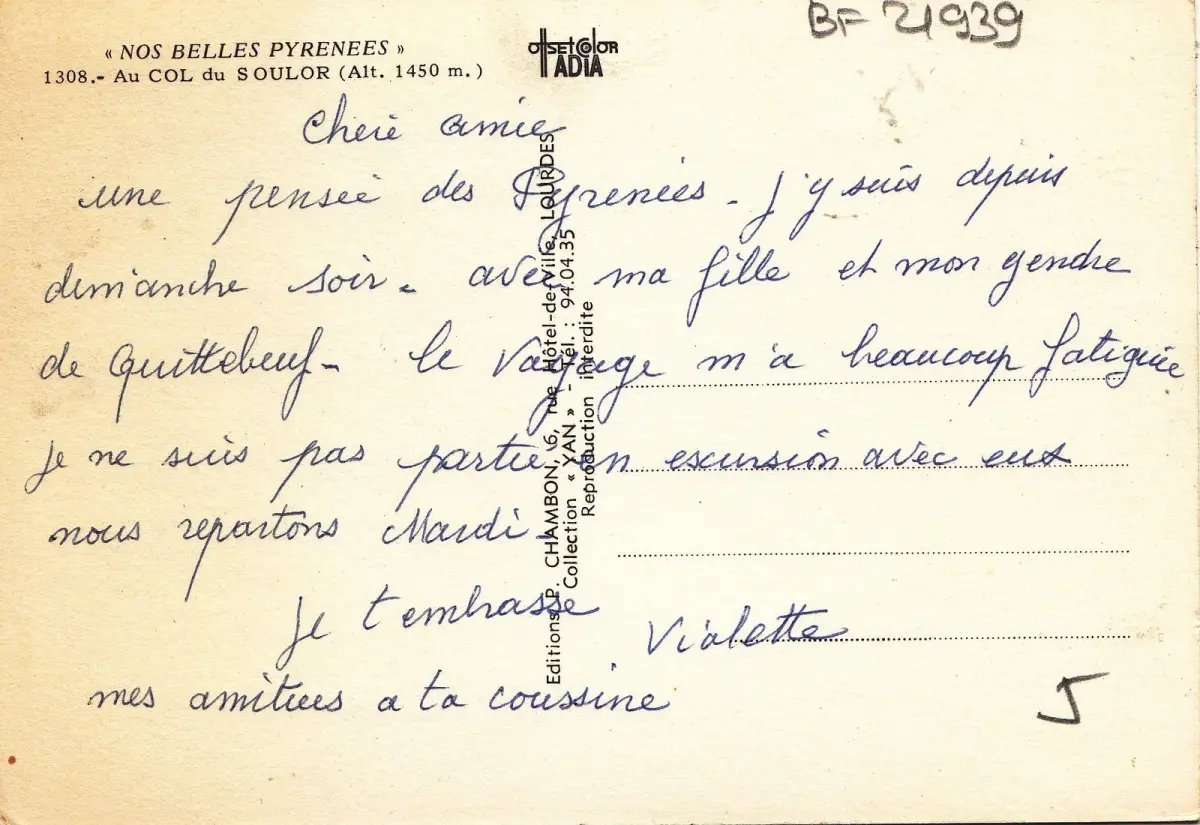 BF 21939
« NOS BELLES PYRENEES »
1308.- Au COL du SOULOR (Alt. 1450 m.)
offset color
ADIA
Cherè amie
une penseè des Pyreneès - j'y suis depuis
dimanche soir - avec ma fille et mon gendre
de Quittebeuf - le voyage m'a beaucoup fatiguèe
je ne suis pas partie en excursion avec eux
nous repartons Mardi -
je t'embrasse
Violette
mes amitiees a ta coussine
5
Editions P. CHAMBON, 6, rue Hôtel-de-Ville, LOURDES
Collection « YAN » - Tél. : 94.04.35
Reproduction interdite